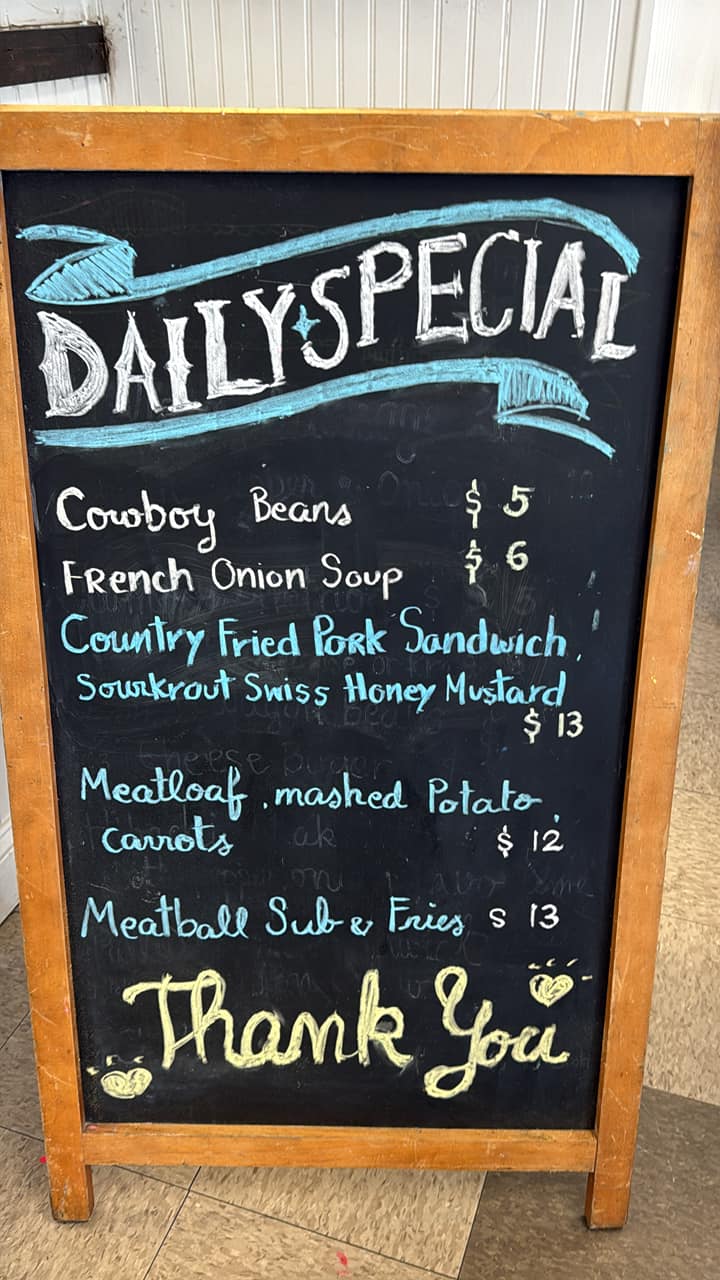 DAILY SPECIAL
Cowboy Beans $ 5
French Onion Soup $ 6
Country Fried Pork Sandwich,
Sourkrout Swiss Honey Mustard
$ 13
Meatloaf, mashed Potato,
carrots $ 12
Meatball Sub & Fries $ 13
Thank You